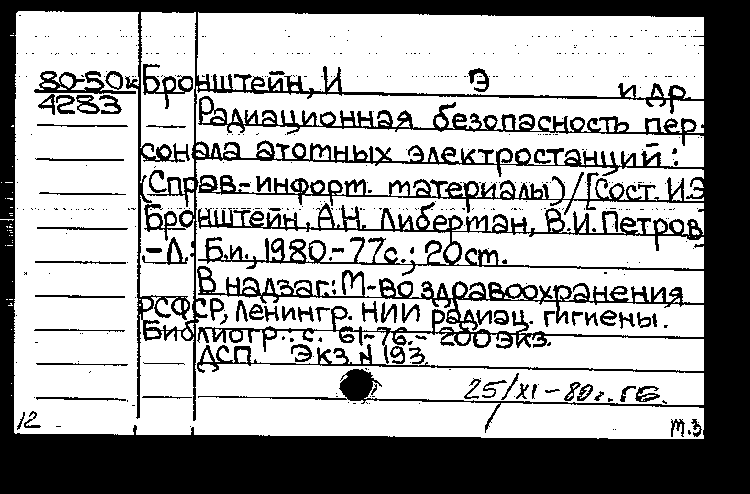 80-50к Бронштейн, И Э и др.
4283
Радиационная безопасность пер-
сонала атомных электростанций:
(Справ.-информ. материалы)/[Сост. И.Э
Бронштейн, А.Н. Либерман, В.И. Петров
.-Л.: Б.и., 1980.-77с.; 20см.
В надзаг.: М-во здравоохранения
РСФСР, Ленингр. НИИ радиац. гигиены.
Библиогр.: с. 61-76.- 200 экз.
ДСП. Экз. № 193.
25/XI-80г. ГБ.
12
т.з.